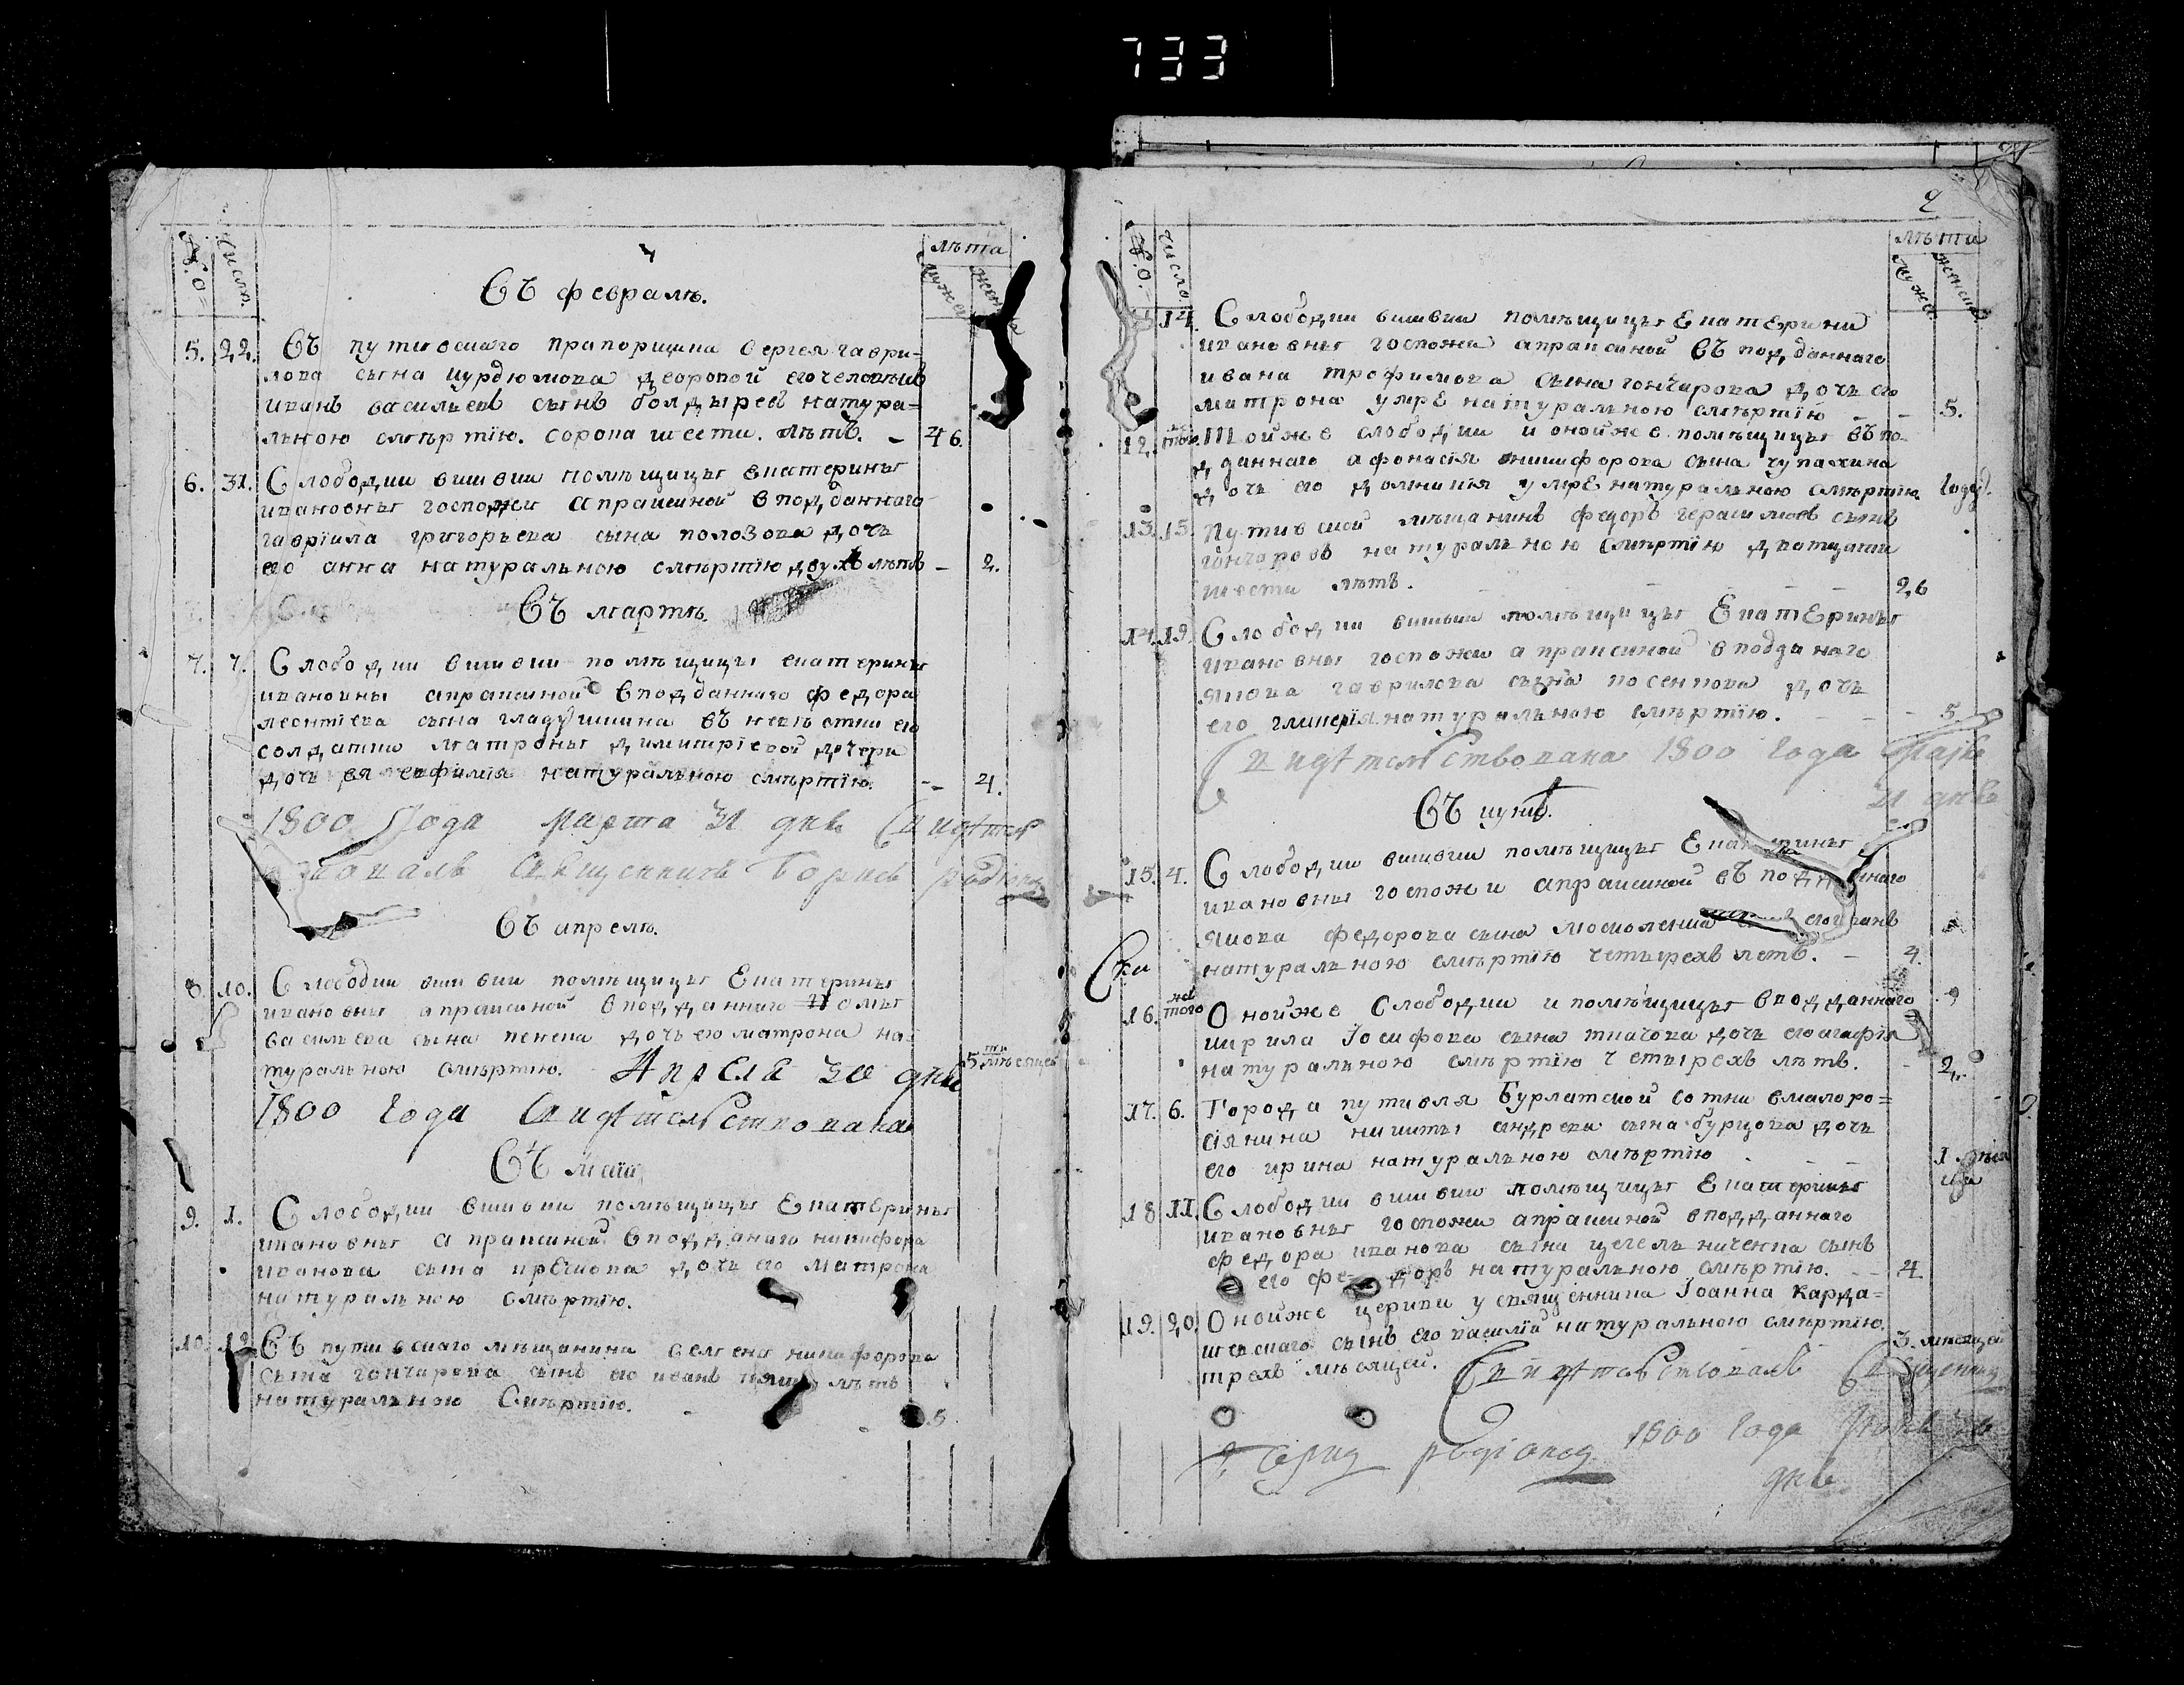 733
№ число лѣта
мужеска женска
Въ февралѣ.
5. 22. Въ путивскаго прапорщика сергея гаври=
лова сына курдюмова дворовой его человѣкъ
иванъ васильевъ сынъ болдыревъ натура=
льною смѣртїю. сорока шести. лѣтъ. – 46.
6. 31. Слободки вишвки помѣщицы екатерины
ивановны госпожи апраксиной вподданнаго
гаврїила григорьева сына полозова дочь
его анна натуральною смѣртїю двухъ лѣтъ – 2.
Въ мартѣ.
7. 7. Слободки вишвки помѣщицы екатерины
ивановны апраксиной вподданнаго федора
леонтїева сына гладушкина въ невѣстки его
солдатки матроны димитрїевой дочери
дочь ея евфимїя натуральною смѣртїю. -- 4.
1800 Года марта 31 дня Свидѣтел
ствовалъ Священникъ Борисъ родїонов
Въ апрелѣ.
8. 10. Слободки вишвки помѣщицы Екатерины
ивановны апраксиной вподданнаго Фомы
васильева сына дочь его матрона на=
туральною смѣртїю. 5 мѣсяцей
Апреля 30 дня
1800 Года Свидѣтелствована
Въ маїи
9. 1. Слободки вишвки помѣщицы Екатерины
ивановны апраксиной вподданаго никифора
иванова сына дочь его матрона
натуральною смѣртїю.
10. 12 Въ путивскаго мѣщанина семена никифорова
сына гончарова сынъ его иванъ пяти лѣтъ
натуральною Смѣртїю. - - 5
2
№ число. лѣта
мужеска женска
14. Слободки вишвки помѣщицы Екатерины
ивановны госпожи апраксиной въ подданнаго
ивана трофимова сына гончарова дочь его
матрона умре натуральною смѣртїю – – 5.
12. того Тойже слободки и онойже помѣщицы въ по
данного афонасїя никифорова сына чупахина
дочь его домникїя умре натуральною смѣртїю году
13. 15 Путивской мѣщанинъ федоръ герасимовъ сынъ
гончаровъ натуральною смѣртїю дватцати
шести лѣтъ. – – – – 26
14. 19. Слободки вишвки помѣщицы Екатерины
ивановны госпожи апраксиной вподданаго
якова гаврилова сына дочь
его гликерїя натуральною смѣртїю. – – 5
Свидѣтелствована 1800 Года Маїя
31 дня
Въ iунѣ.
15. 4. Слободки вишвки помѣщицы
ивановны госпожи апраксиной въ
якова федорова сына его иванъ
натуральною смѣртїю четырехъ летъ. – 4.
16. того Онойже Слободки и помѣщицы вподданнаго
кирила Іосифова сына ткачова дочь его агафїя
натуральною смѣртїю четырехъ лѣтъ. - 2.
17. 6. Города путивля Бурлатской сотни вмалоро=
сїянина никиты андреева сына бурцова дочь
его ирина натуральною смѣртїю - – – 1
18 11. Слободки вишвки помѣщицы Екатерины
ивановны госпожи апраксиной вподданнаго
федора иванова сына цегельниченка сынъ
его федоръ натуральною смѣртїю. – – 4
19. 20. Онойже церкви у священника Іоанна Карда=
шевскаго сынъ его василїй натуральною смѣртїю.
трехъ мѣсяцей. 3. мѣсяцей
Свидѣтелствовалъ
родїонов 1800 Года
дня